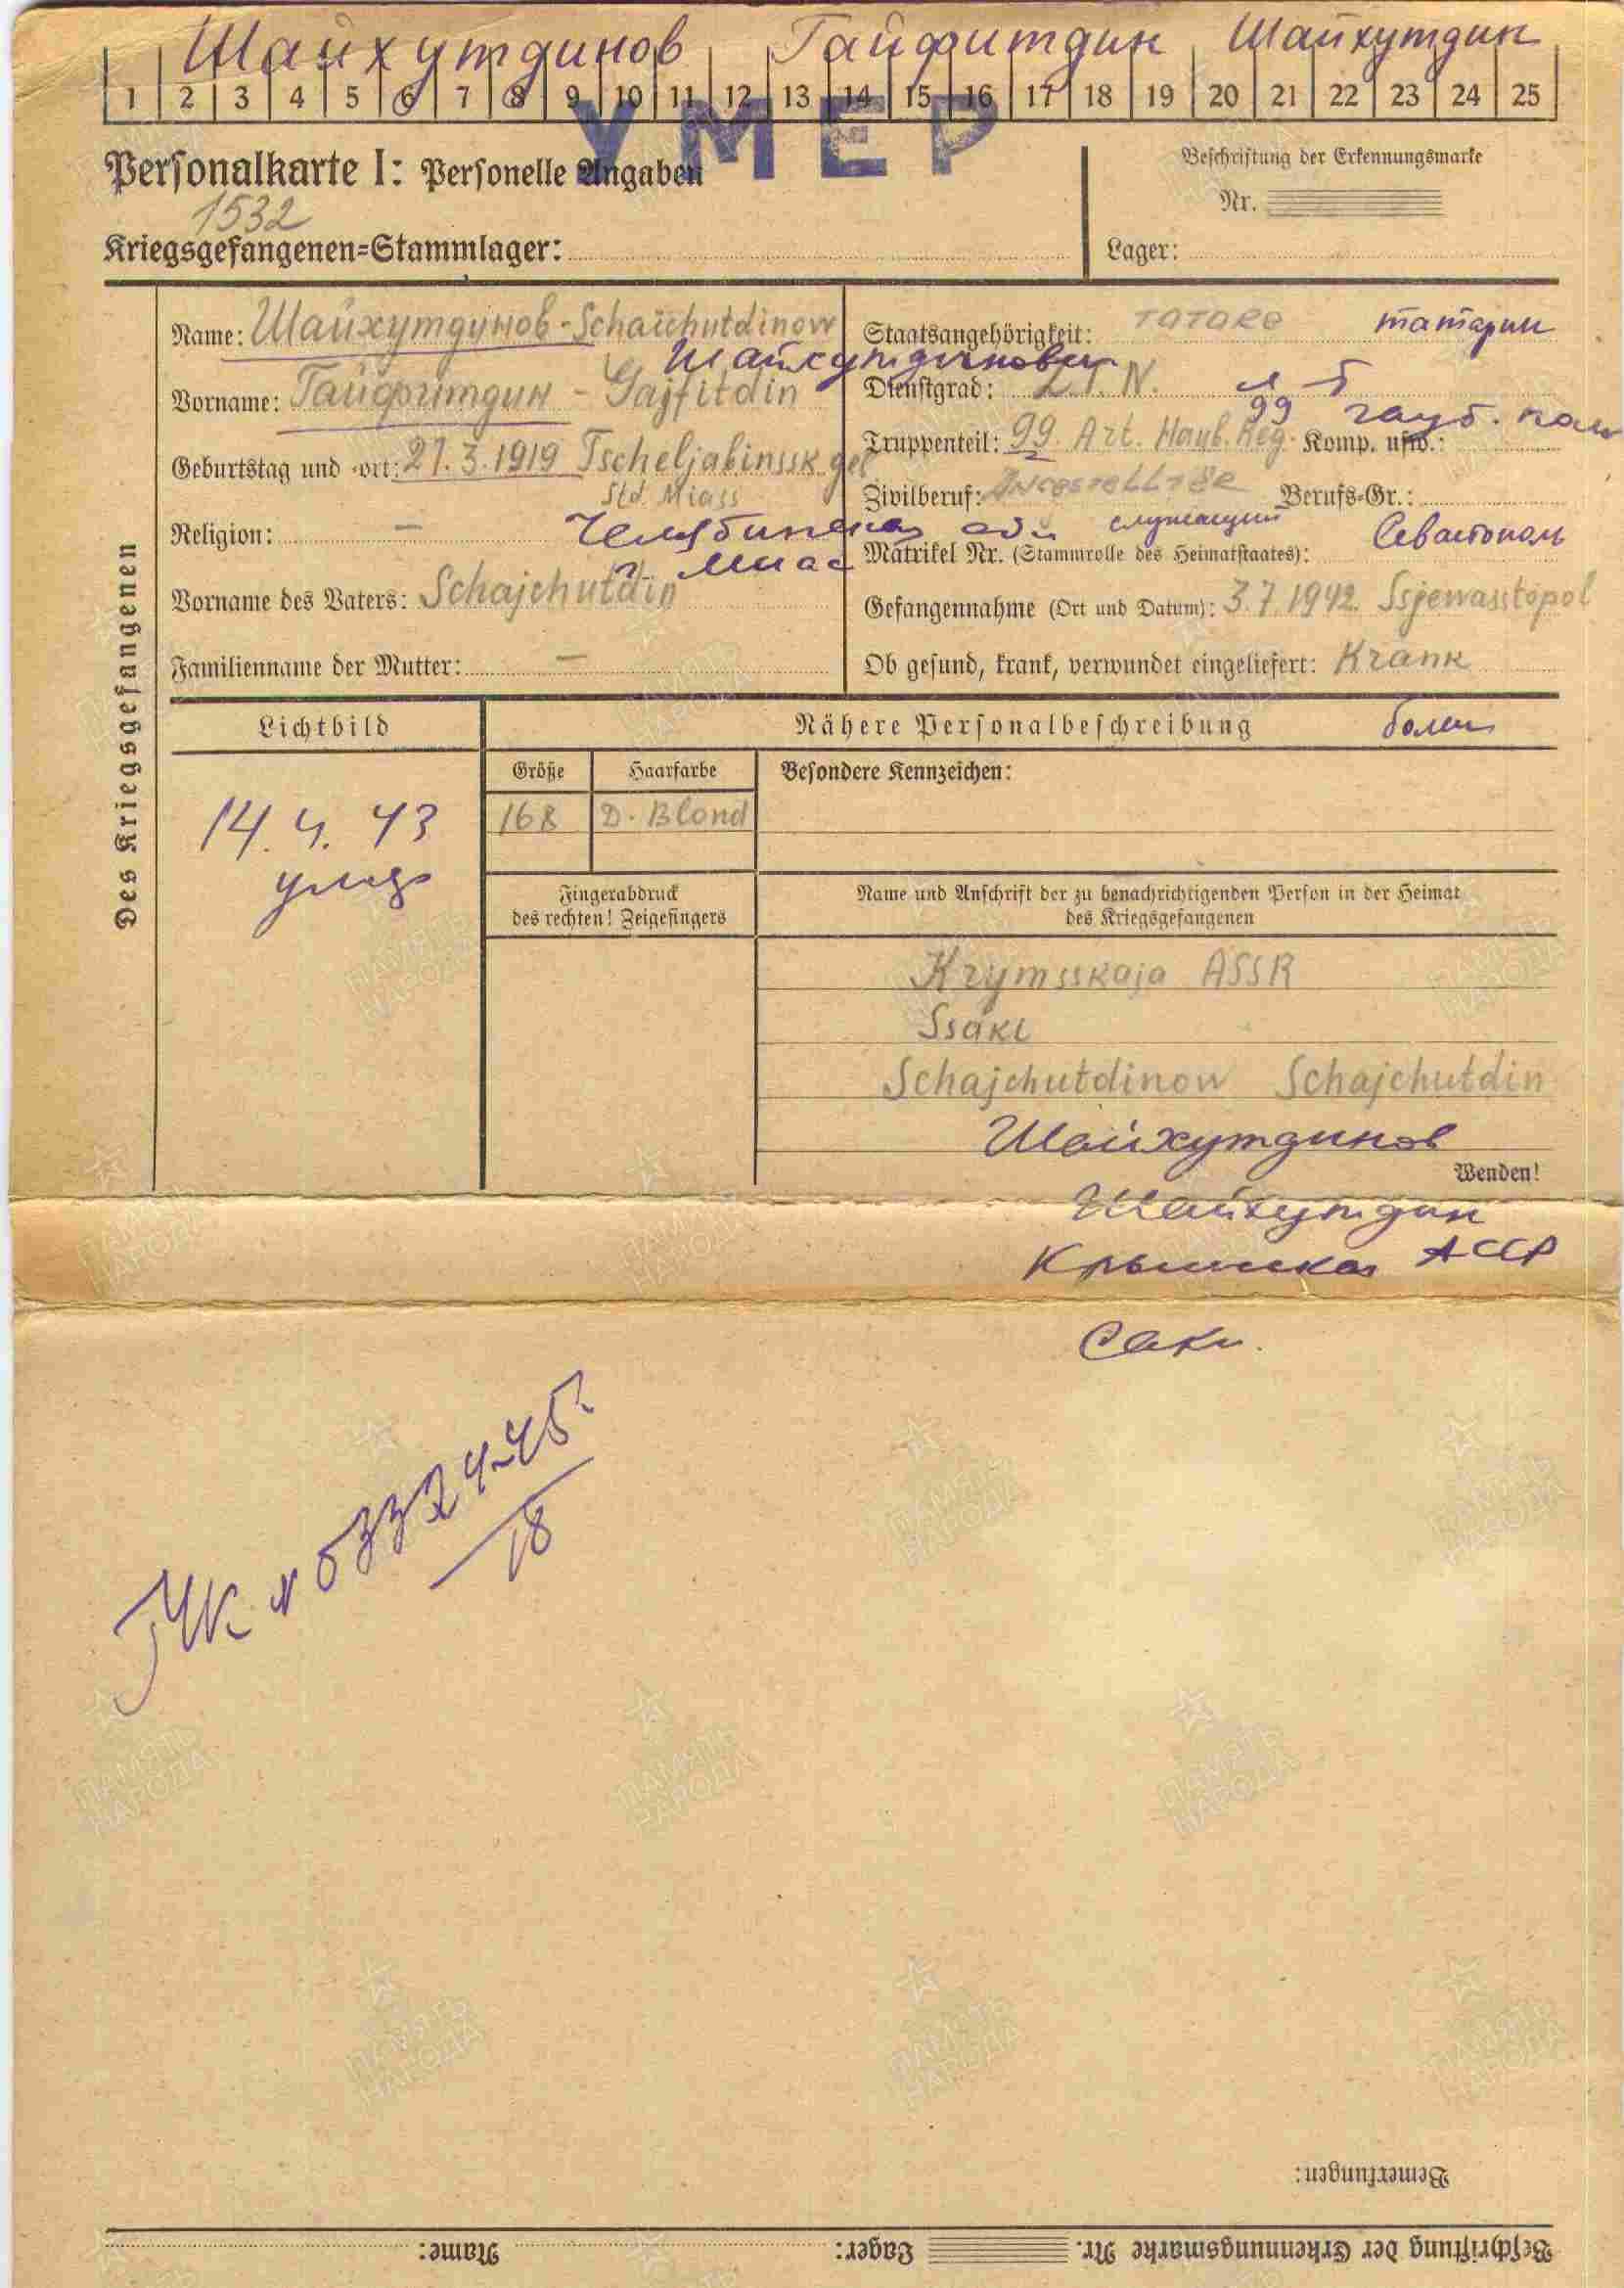 Шайхутдинов Гайфитдин Шайхутдин
1 2 3 4 5 6 7 8 9 10 11 12 13 14 15 16 17 18 19 20 21 22 23 24 25
УМЕР
Personalkarte I: Personelle Angaben
Beschriftung der Erkennungsmarke
Nr.
1532
Kriegsgefangenen=Stammlager:
Lager:
Des Kriegsgefangenen
Name: Шайхутдинов - Schaichutdinow
Шайхутдинович
Vorname: Гайфитдин - Gajfitdin
Geburtstag und -ort: 27.3.1919 Tscheljabinssk geb
Std. Miass
Religion: —
Челябинская обл
г. Миас
Vorname des Vaters: Schajchutdin
Familienname der Mutter: —
Staatsangehörigkeit: TATARE татарин
Dienstgrad: LT. N. л-т
99 гауб. пол
Truppenteil: 99. Art. Haub. Reg. Komp. usw.:
Zivilberuf: Angestellter Berufs=Gr.:
служащий Севастополь
Matrikel Nr. (Stammrolle des Heimatstaates):
Gefangennahme (Ort und Datum): 3.7.1942. Ssjewasstopol
Ob gesund, krank, verwundet eingeliefert: Krank
болен
Lichtbild
14.4.43
умер
Nähere Personalbeschreibung
Größe Haarfarbe Besondere Kennzeichen:
168 D. Blond
Fingerabdruck
des rechten! Zeigefingers
Name und Anschrift der zu benachrichtigenden Person in der Heimat
des Kriegsgefangenen
Krymsskaja ASSR
Ssaki
Schajchutdinow Schajchutdin
Шайхутдинов
Wenden!
Шайхутдин
Крымская АССР
Саки.
18
Bemerkungen:
Beschriftung der Erkennungsmarke Nr. Lager: Name:
ПАМЯТЬ НАРОДА